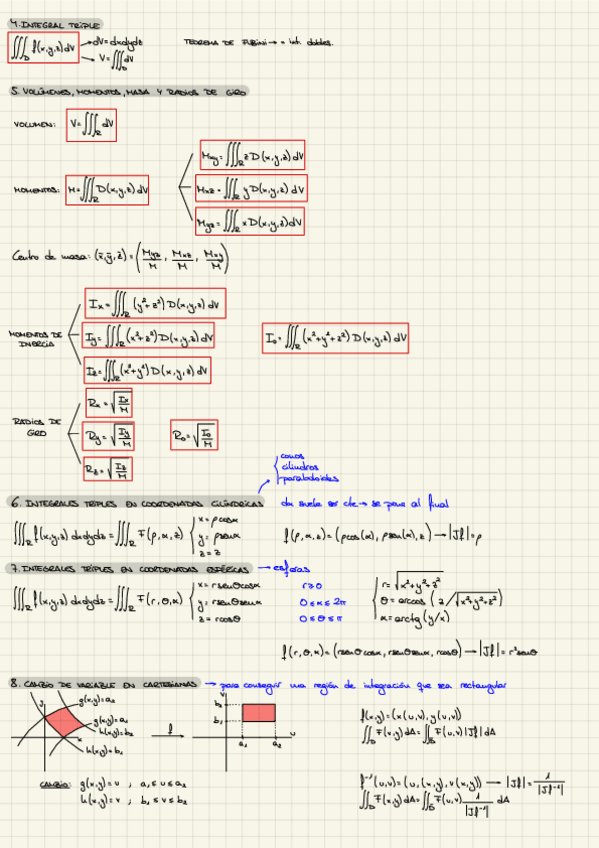 4. INTEGRAL TRIPLE
∭_D f(x,y,z) dV → dV = dxdydz
→ V = ∭_D dV
TEOREMA DE FUBINI → = int. dobles.
5. VOLÚMENES, MOMENTOS, MASA Y RADIOS DE GIRO
VOLUMEN: V = ∭_R dV
MOMENTOS: M = ∭_R D(x,y,z) dV
Mxy = ∭_R z D(x,y,z) dV
Mxz = ∭_R y D(x,y,z) dV
Myz = ∭_R x D(x,y,z) dV
Centro de masa: (x̄,ȳ,z̄) = (Myz/M, Mxz/M, Mxy/M)
MOMENTOS DE INERCIA
Ix = ∭_R (y²+z²) D(x,y,z) dV
Iy = ∭_R (x²+z²) D(x,y,z) dV
Iz = ∭_R (x²+y²) D(x,y,z) dV
I₀ = ∭_R (x²+y²+z²) D(x,y,z) dV
RADIOS DE GIRO
Rx = √(Ix/M)
Ry = √(Iy/M)
Rz = √(Iz/M)
R₀ = √(I₀/M)
conos
cilindros
paraboloides
6. INTEGRALES TRIPLES EN COORDENADAS CILÍNDRICAS
dα suele ser cte → se pone al final
∭_R f(x,y,z) dxdydz = ∭_R F(ρ,α,z)
x = ρcosα
y = ρsenα
z = z
f(ρ,α,z) = (ρcos(α), ρsen(α), z) → |Jf| = ρ
7. INTEGRALES TRIPLES EN COORDENADAS ESFÉRICAS → esferas
∭_R f(x,y,z) dxdydz = ∭_R F(r,θ,α)
x = rsenθcosα
y = rsenθsenα
z = rcosθ
r≥0
0≤α≤2π
0≤θ≤π
r = √(x²+y²+z²)
θ = arccos (z/√(x²+y²+z²))
α = arctg(y/x)
f(r,θ,α) = (rsenθcosα, rsenθsenα, rcosθ) → |Jf| = r²senθ
8. CAMBIO DE VARIABLE EN CARTESIANAS → para conseguir una región de integración que sea rectangular
y
g(x,y)=a₂
g(x,y)=a₁
h(x,y)=b₂
x
h(x,y)=b₁
f
v
b₂
b₁
a₁
a₂
u
f(x,y) = (x(u,v), y(u,v))
∬_D F(x,y) dA = ∬_D F(u,v) |Jf| dA
CAMBIO: g(x,y) = u ; a₁≤u≤a₂
h(x,y) = v ; b₁≤v≤b₂
f⁻¹(u,v) = (u,(x,y), v(x,y)) → |Jf| = 1/|Jf⁻¹|
∬_D F(x,y) dA = ∬_D F(u,v) 1/|Jf⁻¹| dA